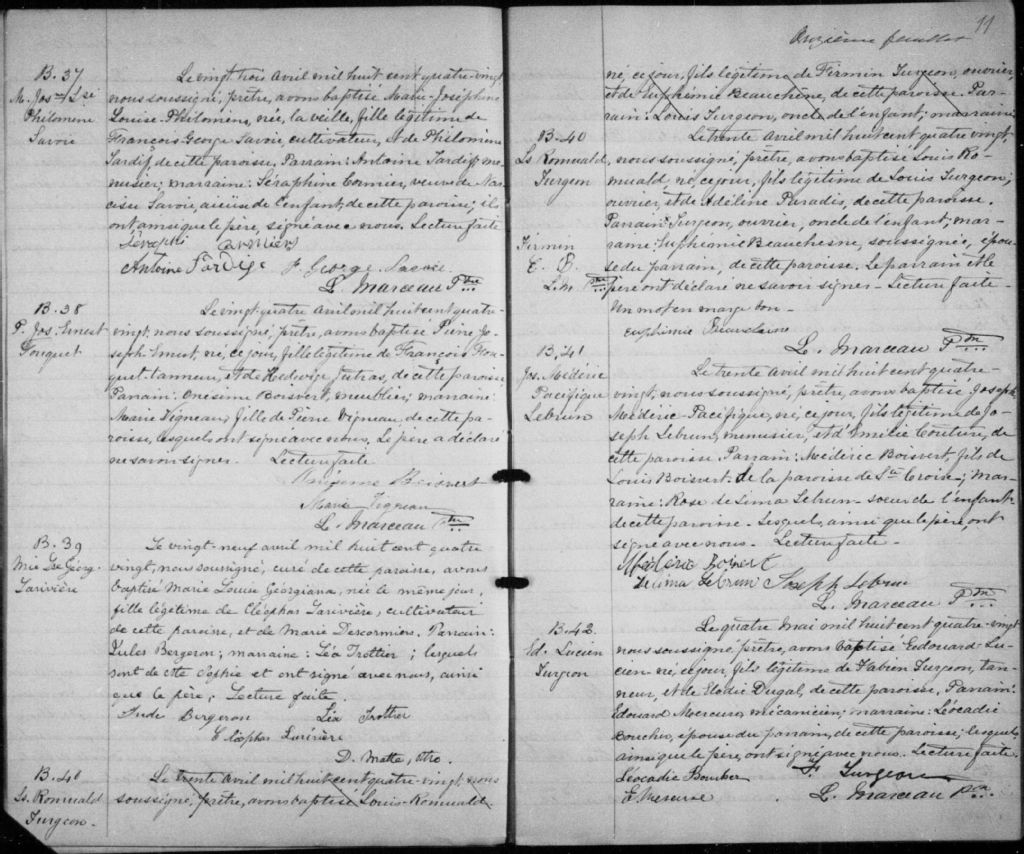 B. 37
M. Jos. Lse
Philomène
Savoie
Le vingt trois Avril mil huit cent quatre-vingt
nous soussigné, prêtre, avons baptisé Marie-Joséphine
Louise-Philomène, née, la veille, fille légitime de
François-George Savoie, cultivateur, et de Philomène
Tardif de cette paroisse. Parrain: Antoine Tardif, me-
nusier; marraine: Séraphine Cormier, veuve de Nar-
cisse Savoie, aïeüe de l'enfant, de cette paroisse; ils
ont ainsi que le père, signé avec nous. Lecture faite
Séraphi Cormier
Antoine Tardife F. George Savoie
L. Marceau Ptre
B. 38
P. Jos. Ernest
Fouquet
Le vingt quatre Avril mil huit cent quatre-
vingt, nous soussigné, prêtre, avons baptisé Pierre Jo-
seph Ernest, né, ce jour, fils légitime de François Fou-
quet, tanneur, et de Hedwige Jutras, de cette paroisse
Parrain: Onésime Boisvert, meublier; marraine:
Marie Vigneau, fille de Pierre Vigneau, de cette pa-
roisse, lesquels ont signé avec nous. Le père a déclaré
ne savoir signer. Lecture faite
Onésime Boisvert
Marie Vigneau
L. Marceau Ptre
B. 39
Mie Lse Géorg.
Larivière
Le vingt-neuf avril mil huit cent quatre
vingt, nous soussigné, curé de cette paroisse, avons
baptisé Marie Louise Georgiana, née le même jour,
fille légitime de Cléophas Larivière, cultivateur
de cette paroisse, et de Marie Descormiers. Parrain:
Jules Bergeron; marraine: Léa Trottier; lesquels
sont de cette et ont signé avec nous, ainsi
que le père; Lecture faite.
Jude Bergeron Léa Trottier
Cléophas Larivière
D. Matte, ptre.
B. 40
Ls. Romuald
Turgeon.
Le trente Avril mil huit cent quatre-vingt, nous
soussigné, prêtre, avons baptisé Louis-Romuald
Onzième feuillet 11
né, ce jour, fils légitime, de Firmin Turgeon, ouvrier,
et de Euphémie Beauchêne, de cette paroisse. Par-
rain: Louis Turgeon, oncle de l'enfant; marraine
B. 40
Ls Romuald
Turgeon
Le trente Avril mil huit cent quatre vingt,
nous soussigné, prêtre, avons baptisé Louis Ro-
muald né, ce jour, fils légitime de Louis Turgeon,
ouvrier, et de Adéline Paradis, de cette paroisse.
Parrain: Turgeon, ouvrier, oncle de l'enfant; mar-
raine: Euphémie Beauchesne, soussignée, épou-
se du parrain, de cette paroisse. Le parrain et le
père ont déclaré ne savoir signer. Lecture faite.
Un mot en marge bon.
Firmin
E. B.
L. M. Ptre
Euphimie Beauchaine
L. Marceau Ptre
B. 41
Jos. Médéric
Pacifique
Lebrun
Le trente Avril mil huit cent quatre-
vingt, nous soussigné, prêtre, avons baptisé Joseph
Médéric-Pacifique, né, ce jour, fils légitime de Jo-
seph Lebrun, menusier, et d'Emilie Couture, de
cette paroisse. Parrain: Médéric Boisvert, fils de
Louis Boisvert, de la paroisse de Ste Croix; mar-
raine: Rose de Lima Lebrun sœur de l'enfant,
de cette paroisse. Lesquels, ainsi que le père, ont
signé avec nous. Lecture faite.
Médéric Boivert
Delima Lebrun Joseph Lebrun
L. Marceau Ptre
B. 42.
Ed. Lucien
Turgeon
Le quatre Mai mil huit cent quatre-vingt
nous soussigné, prêtre, avons baptisé Edouard Lu-
cien né, ce jour, fils légitime de Fabien Turgeon, tan-
neur, et de Elodie Dugal, de cette paroisse. Parrain:
Edouard Mercure, mécanicien; marraine: Léocadie
Boucher, épouse du parrain, de cette paroisse; lesquels,
ainsi que le père, ont signé avec nous. Lecture faite.
Léocadie Boucher F. Turgeon
E. Mercure L. Marceau Ptre